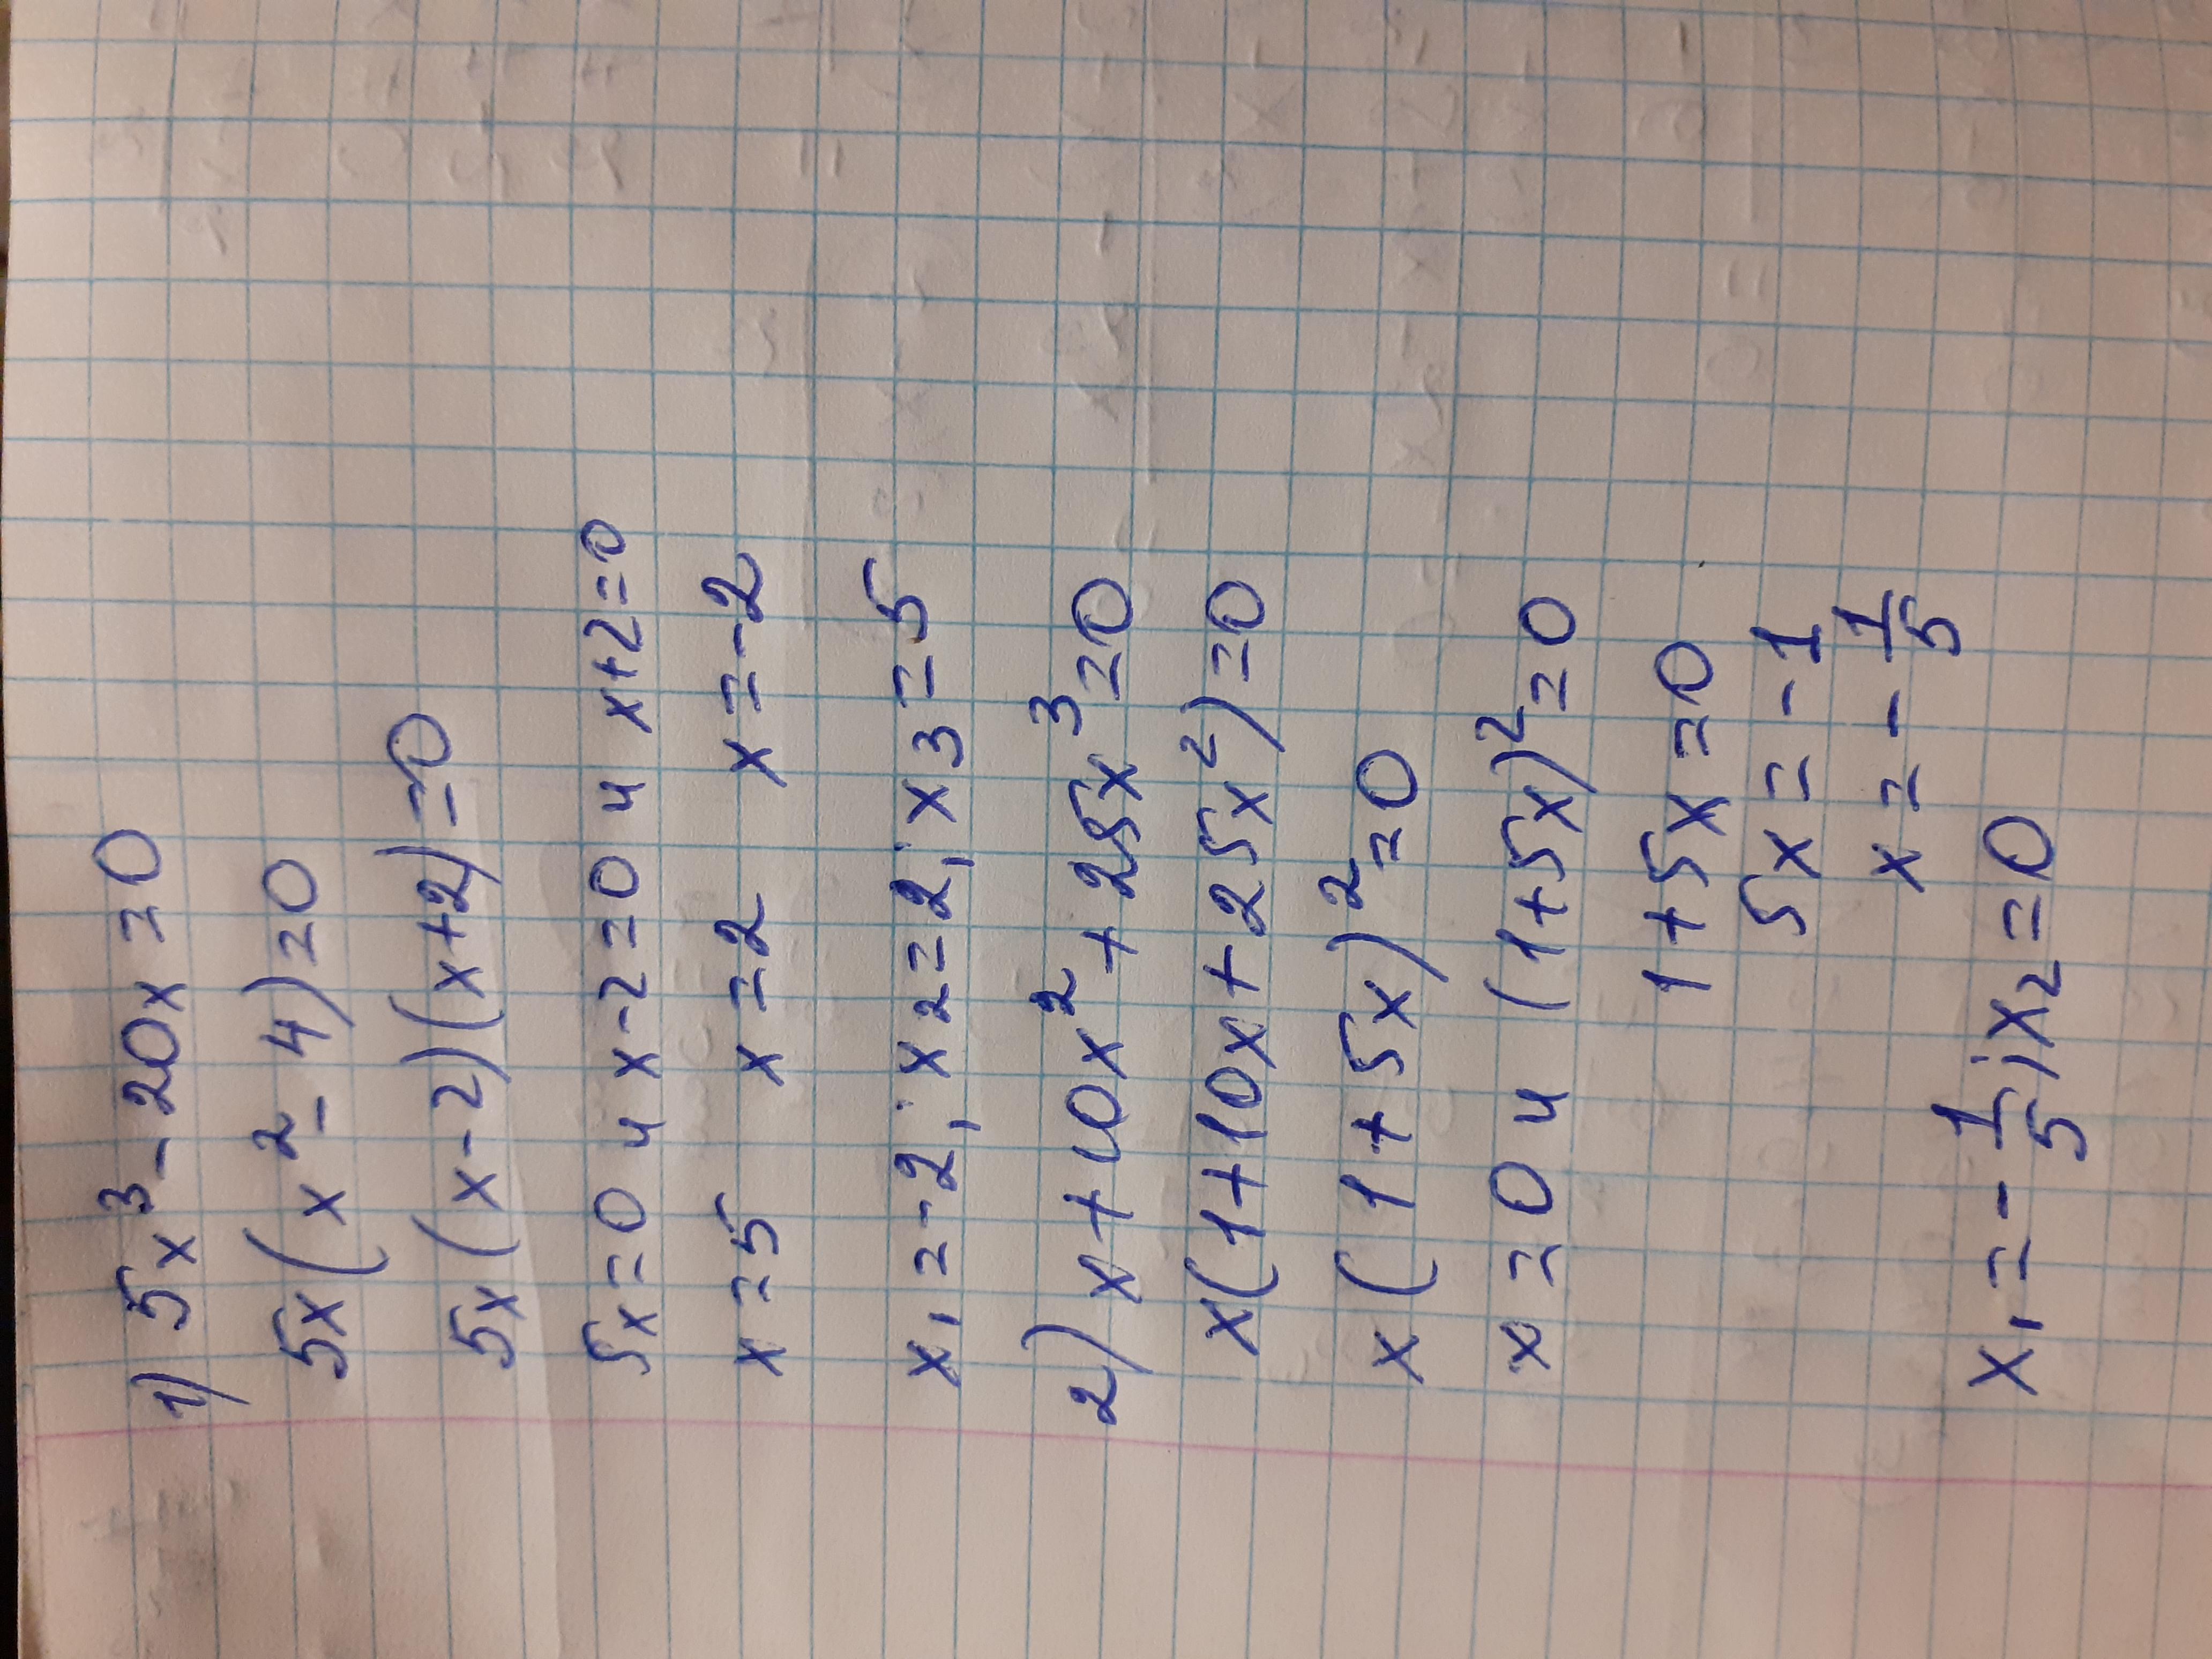 1) 5x³-20x=0
5x(x²-4)=0
5x(x-2)(x+2)=0
5x=0 и x-2=0 и x+2=0
x=5 x=2 x=-2
x₁=-2; x₂=2; x₃=5
2) x+10x²+25x³=0
x(1+10x+25x²)=0
x(1+5x)²=0
x=0 и (1+5x)²=0
1+5x=0
5x=-1
x=-1/5
x₁=-1/5; x₂=0